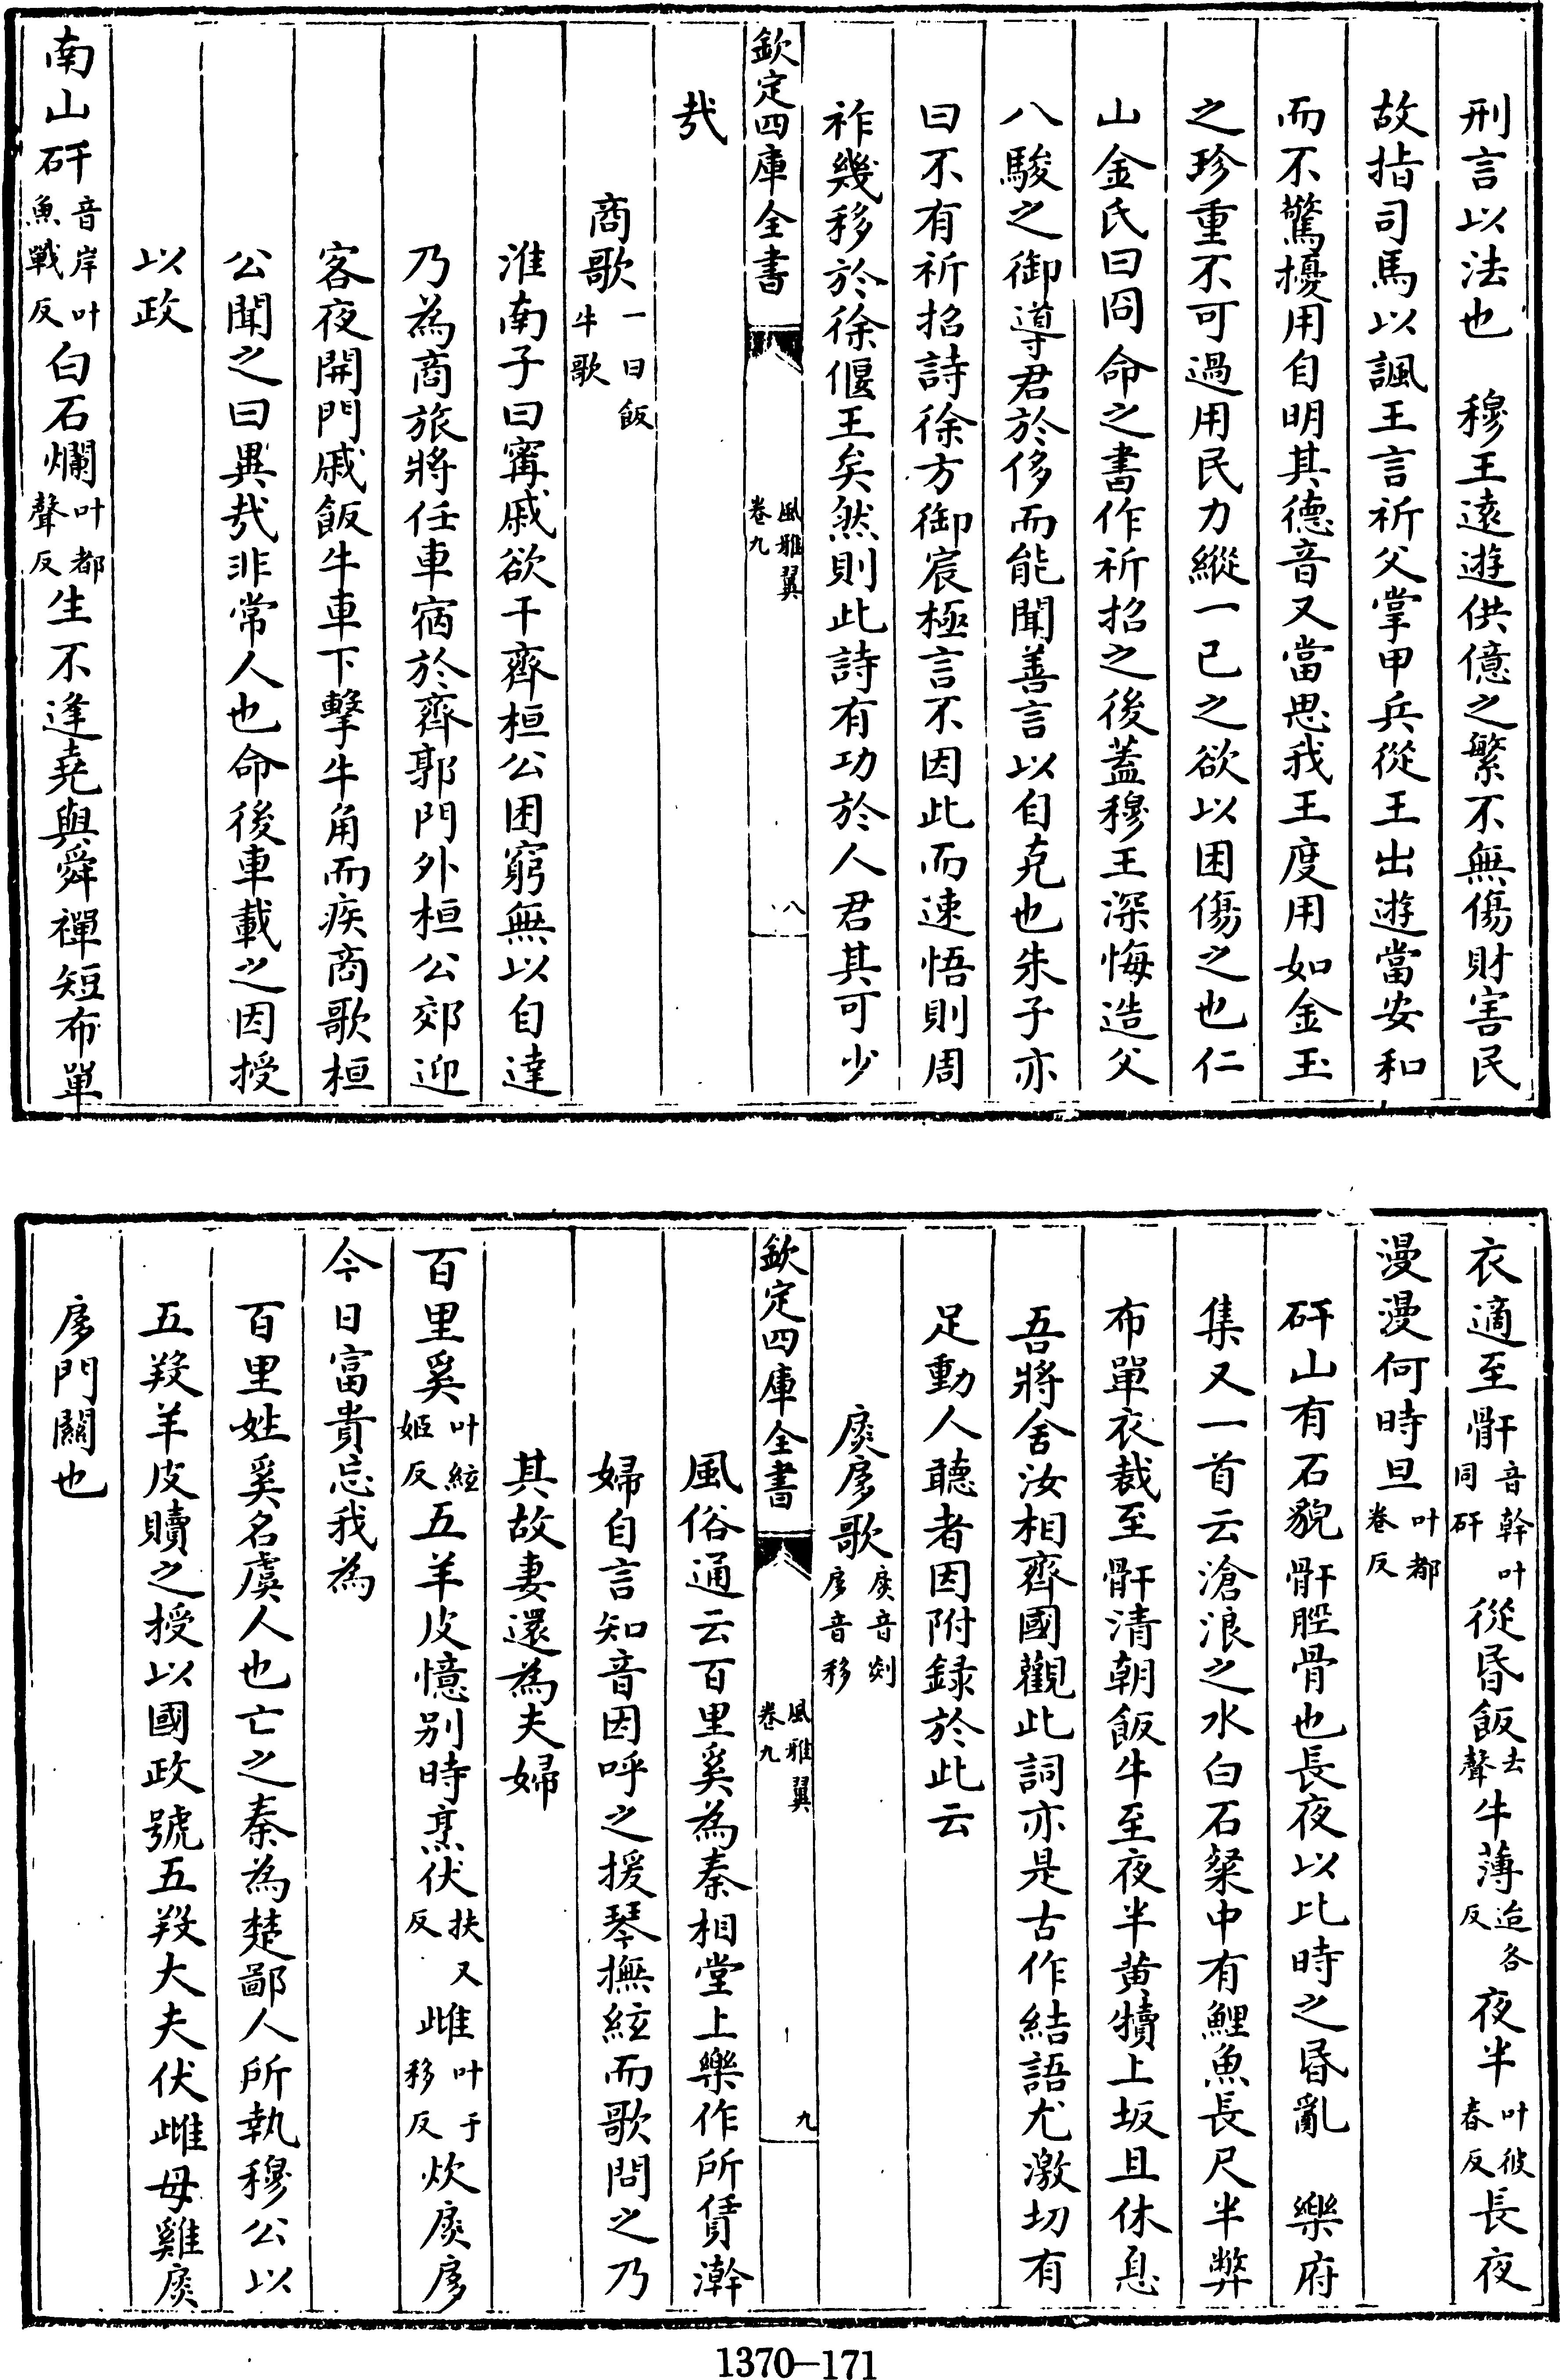 刑言以法也　穆王遠遊供億之繁不無傷財害民
故指司馬以諷王言祈父掌甲兵從王出遊當安和
而不驚擾用自明其德音又當思我王度用如金玉
之珍重不可過用民力縱一已之欲以困傷之也仁
山金氏曰冏命之書作祈招之後蓋穆王深悔造父
八駿之御導君於侈而能聞善言以自克也朱子亦
曰不有祈招詩徐方御宸極言不因此而速悟則周
祚幾移於徐偃王矣然則此詩有功於人君其可少
欽定四庫全書　風雅翼卷九　八
哉
商歌一曰飯牛歌
淮南子曰甯戚欲干齊桓公困窮無以自達
乃為商旅將任車宿於齊郭門外桓公郊迎
客夜開門戚飯牛車下擊牛角而疾商歌桓
公聞之曰異哉非常人也命後車載之因授
以政
南山矸音岸叶魚戰反白石爛叶都聲反生不逢堯與舜禪短布單
衣適至骭音幹叶同矸從昏飯去聲牛薄迨各反夜半叶彼春反長夜
漫漫何時旦叶都卷反
矸山有石貌骭脛骨也長夜以比時之昏亂　樂府
集又一首云滄浪之水白石粲中有鯉魚長尺半弊
布單衣裁至骭清朝飯牛至夜半黄犢上坂且休息
吾將舍汝相齊國觀此詞亦是古作結語尤激切有
足動人聽者因附録於此云
扊扅歌扊音剡扅音移
欽定四庫全書　風雅翼卷九　九
風俗通云百里奚為秦相堂上樂作所賃澣
婦自言知音因呼之援琴撫絃而歌問之乃
其故妻還為夫婦
百里奚叶絃姬反五羊皮憶别時烹伏扶又反雌叶于移反炊扊扅
今日富貴忘我為
百里姓奚名虞人也亡之秦為楚鄙人所執穆公以
五羖羊皮贖之授以國政號五羖大夫伏雌母雞扊
扅門關也
1370—171